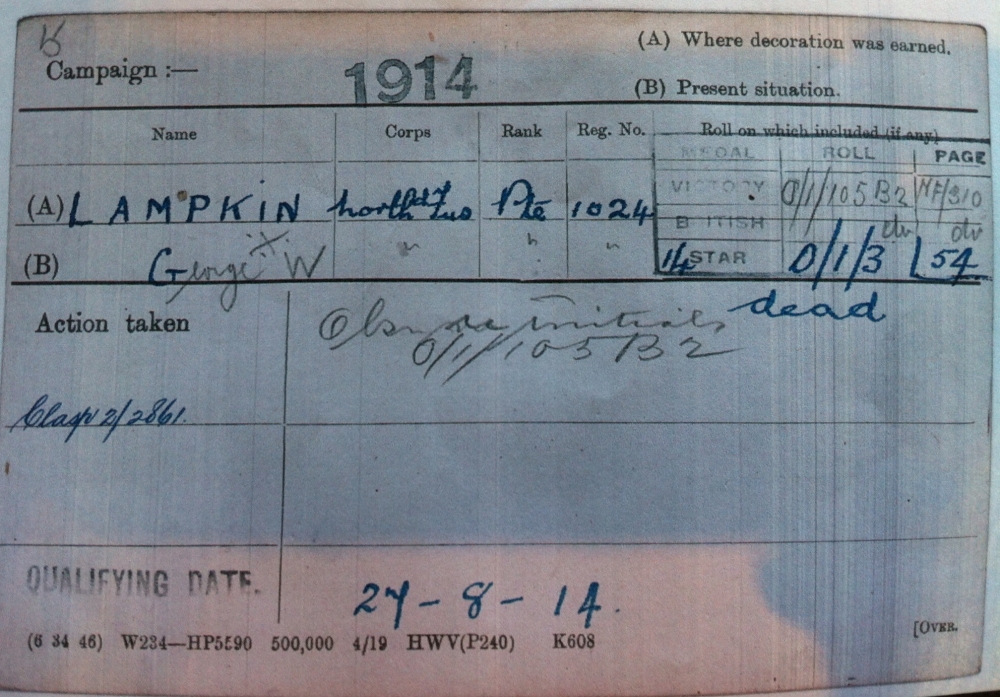 (A) Where decoration was earned.
Campaign :— 1914
(B) Present situation.
Name Corps Rank Reg. No. Roll on which included (if any)
MEDAL ROLL PAGE
(A) LAMPKIN Pte 1024 VICTORY O/1/105 B2 NF/310
BRITISH do do
(B) George W " " " 14 STAR O/1/3 L54
Action taken dead
initials
O/1/105 B2
Clasp 2/2861.
QUALIFYING DATE. 27-8-14.
(6 34 46) W234—HP5590 500,000 4/19 HWV(P240) K608 [OVER.